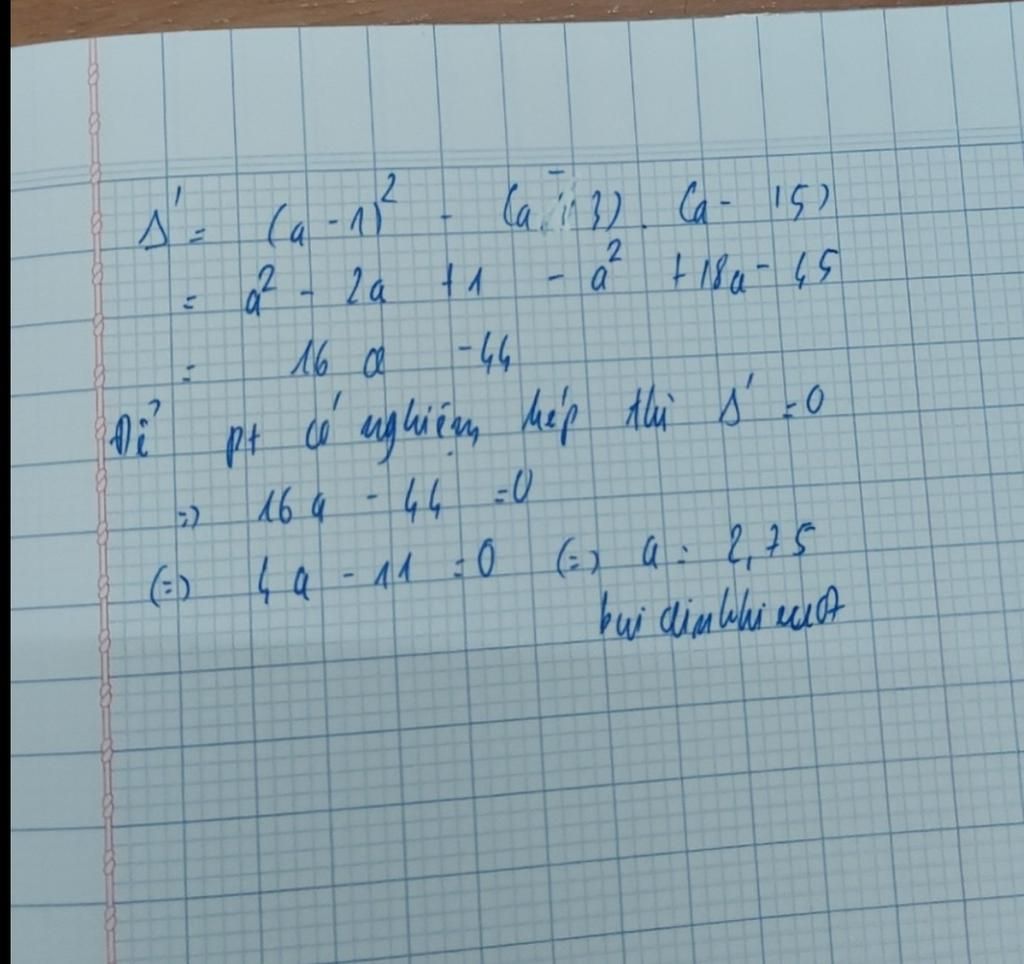 Δ' = (a - 1)² - (a - 3) . (a - 15)
= a² - 2a + 1 - a² + 18a - 45
= 16 a - 44
Để pt có nghiệm kép thì Δ' = 0
=> 16 a - 44 = 0
(=) 4 a - 11 = 0 (=) a = 2,75
bui dinh